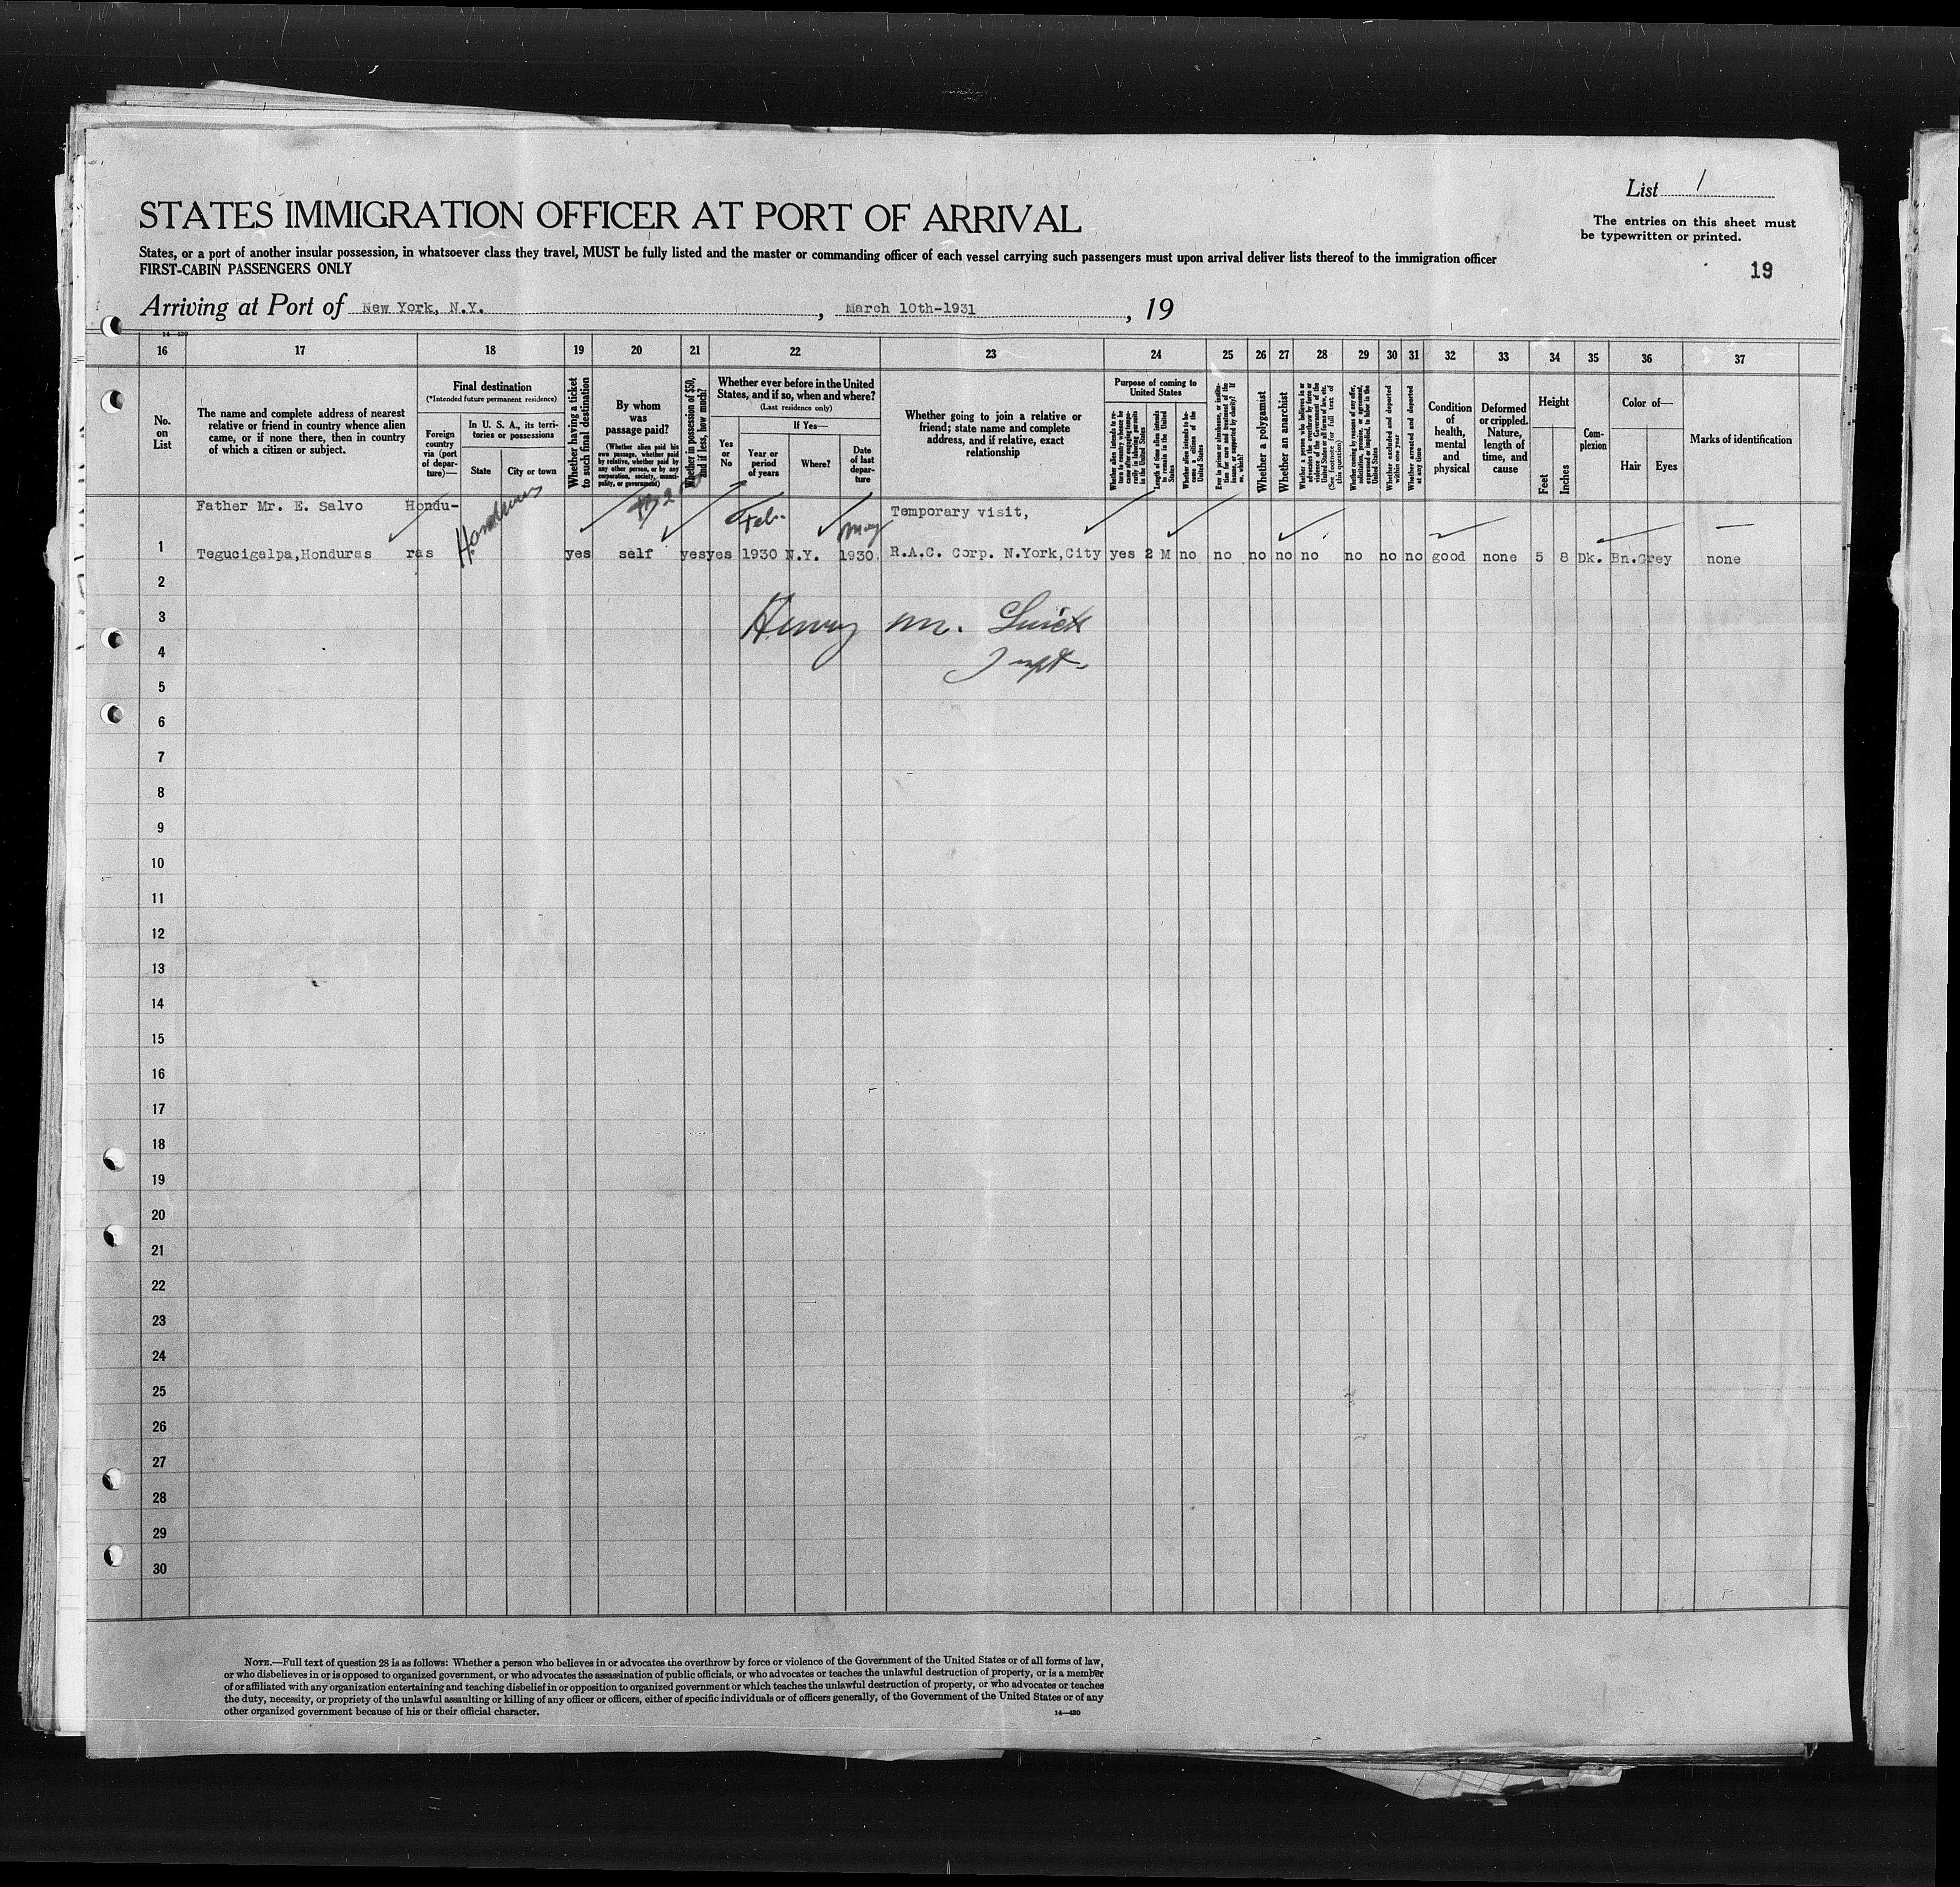 List 1
STATES IMMIGRATION OFFICER AT PORT OF ARRIVAL
The entries on this sheet must
be typewritten or printed.
States, or a port of another insular possession, in whatsoever class they travel, MUST be fully listed and the master or commanding officer of each vessel carrying such passengers must upon arrival deliver lists thereof to the immigration officer
FIRST-CABIN PASSENGERS ONLY
19
Arriving at Port of New York, N.Y. , March 10th-1931 , 19
14-430
16 17 18 19 20 21 22 23 24 25 26 27 28 29 30 31 32 33 34 35 36 37
No.
on
List
The name and complete address of nearest
relative or friend in country whence alien
came, or if none there, then in country
of which a citizen or subject.
Final destination
(*Intended future permanent residence)
Foreign
country
via (port
of depar-
ture)—
In U. S. A., its terri-
tories or possessions
State
City or town
Whether having a ticket
to such final destination
By whom
was
passage paid?
(Whether alien paid his
own passage, whether paid
by relative, whether paid by
any other person, or by any
corporation, society, munici-
pality, or government)
Whether in possession of $50,
and if less, how much?
Whether ever before in the United
States, and if so, when and where?
(Last residence only)
Yes
or
No
If Yes—
Year or
period
of years
Where?
Date
of last
depar-
ture
Whether going to join a relative or
friend; state name and complete
address, and if relative, exact
relationship
Purpose of coming to
United States
Whether alien intends to re-
turn to country whence he
came after engaging tempo-
rarily in laboring pursuits
in the United States
Length of time alien intends
to remain in the United
States
Whether alien intends to be-
come a citizen of the
United States
Ever in prison or almshouse, or institu-
tion for care and treatment of the
insane, or supported by charity? If
so, which?
Whether a polygamist
Whether an anarchist
Whether a person who believes in or
advocates the overthrow by force or
violence of the Government of the
United States or all forms of law, etc.
(See footnote for full text of
this question)
Whether coming by reason of any offer,
solicitation, promise, or agreement,
expressed or implied, to labor in the
United States
Whether excluded and deported
within one year
Whether arrested and deported
at any time
Condition
of
health,
mental
and
physical
Deformed
or crippled.
Nature,
length of
time, and
cause
Height
Feet
Inches
Com-
plexion
Color of—
Hair
Eyes
Marks of identification
Father Mr. E. Salvo Hondu- Honduras Feb. May Temporary visit,
1 Tegucigalpa,Honduras ras yes self yes yes 1930 N.Y. 1930. R.A.C. Corp. N.York,City yes 2 M no no no no no no no no good none 5 8 Dk. Bn. Grey none
2
3
Henry M.
4
Inspt.
5
6
7
8
9
10
11
12
13
14
15
16
17
18
19
20
21
22
23
24
25
26
27
28
29
30
NOTE.—Full text of question 28 is as follows: Whether a person who believes in or advocates the overthrow by force or violence of the Government of the United States or of all forms of law,
or who disbelieves in or is opposed to organized government, or who advocates the assassination of public officials, or who advocates or teaches the unlawful destruction of property, or is a member
of or affiliated with any organization entertaining and teaching disbelief in or opposition to organized government or which teaches the unlawful destruction of property, or who advocates or teaches
the duty, necessity, or propriety of the unlawful assaulting or killing of any officer or officers, either of specific individuals or of officers generally, of the Government of the United States or of any
other organized government because of his or their official character.
14—430